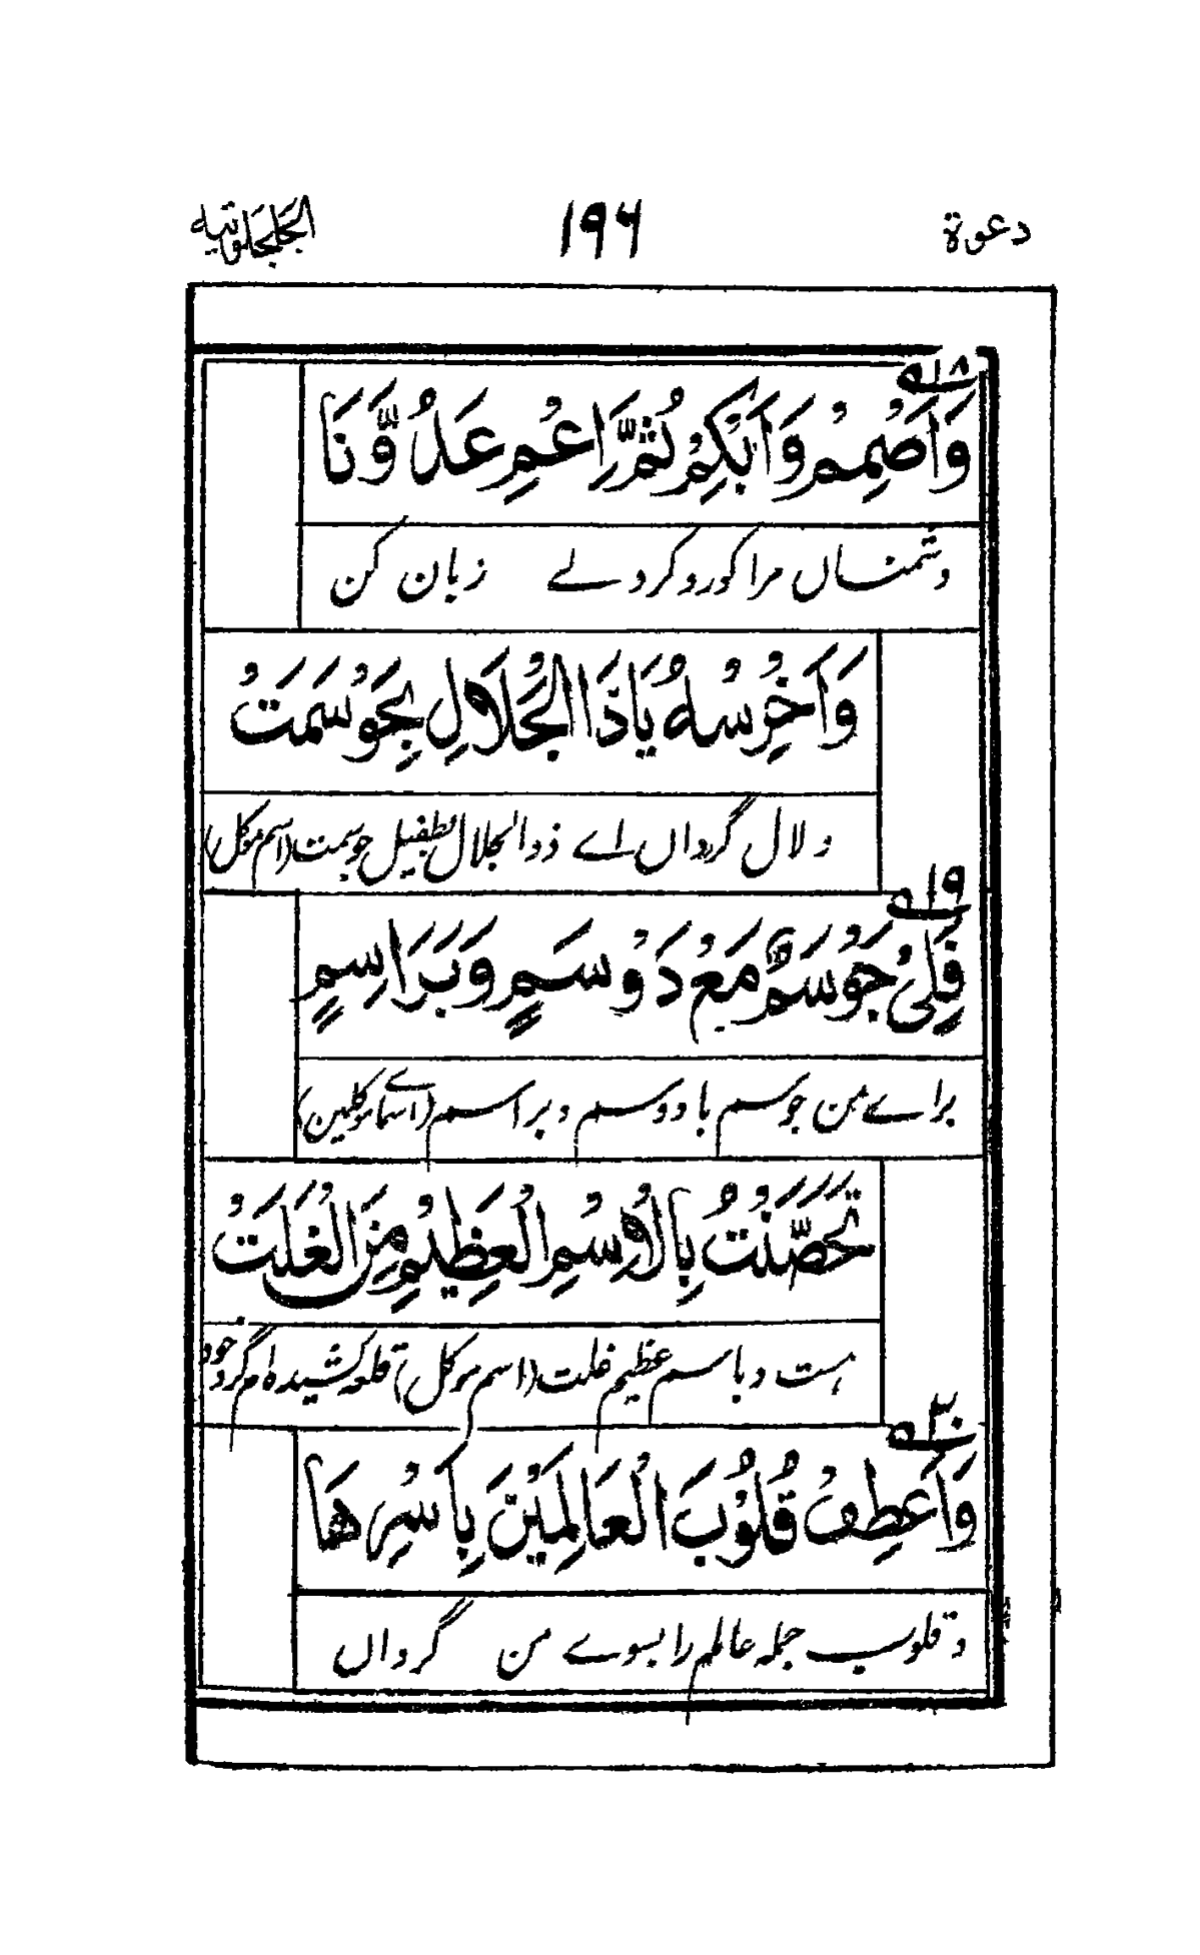 دعوة ۱۹۶ الجلجلوتیه
۱۸
وَاَصْمِمْ وَاَبْكِمْ ثُمَّ اَعْمِ عَدُوَّنَا
دشمنان مرا کور و کر و بے زبان کن
وَاَخْرِسْهُ يَاذَا الْجَلَالِ بِحَوْسَمَتْ
و لال گرداں اے ذوالجلال بطفیل حوسمت (اسم موکل)
۱۹
فَلِیْ جَوْسَمٌ مَعْ دَوْسَمٍ وَبَرَاسِمٍ
براے من جوسم با دوسم و براسم (اسماے موکلین)
تَحَصَّنْتُ بِالْاِسْمِ الْعَظِيْمِ مِنَ الْغَلَتْ
ہست و باسم عظیم غلت (اسم موکل) قلعہ کشیدہ ام گرد خود
۲۰
وَاَعْطِفْ قُلُوْبَ الْعَالَمِيْنَ بِاَسْرِهَا
و قلوب جملہ عالم را بسوے من گرداں